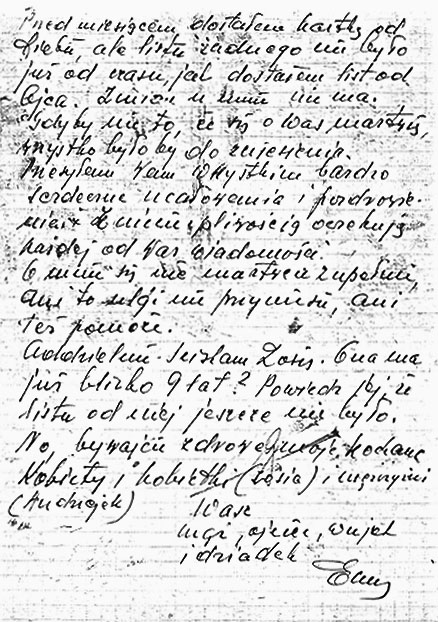 Przed miesiącem dostałem kartkę od
ale listu żadnego nie było
już od czasu jak dostałem list od
Ojca. Zmian u mnie nie ma.
Gdyby nie to, że się o Was martwię,
wszystko byłoby do zniesienia.
Przesyłam Wam wszystkim bardzo
serdeczne ucałowania i pozdrowie-
nia i z niecierpliwością oczekuję
każdej od Was wiadomości.
O mnie się nie martwcie zupełnie,
ani to ulgi nie przyniesie, ani
też pomoże.
Oddzielnie ściskam Zosię. Ona ma
już blizko 9 lat? Powiedz jej że
listu od niej jeszcze nie było.
No, bywajcie zdrowe moje kochane
Kobiety i kobietki (Zosia) i mężczyźni
(Andrzejek)
Wasz
mąż, ojciec, wujek
i dziadek